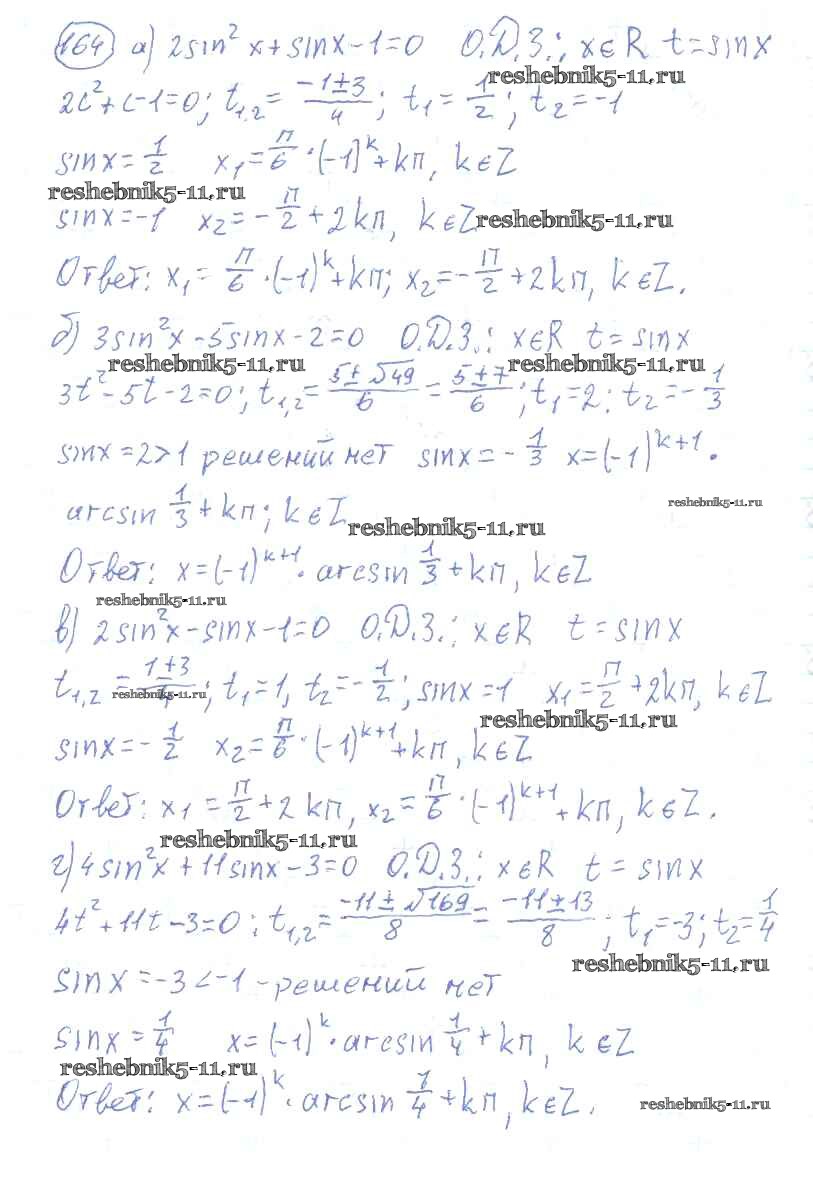 164 а) 2sin² x + sinx - 1 = 0 О.Д.З.: x∈R t = sinx
reshebnik5-11.ru
2t² + t - 1 = 0; t₁,₂ = (-1±3)/4; t₁ = 1/2; t₂ = -1
sinx = 1/2 x₁ = π/6 · (-1)^k + kπ, k∈Z
reshebnik5-11.ru
sinx = -1 x₂ = -π/2 + 2kπ, k∈Z reshebnik5-11.ru
Ответ: x₁ = π/6 · (-1)^k + kπ; x₂ = -π/2 + 2kπ, k∈Z.
б) 3sin²x - 5sinx - 2 = 0 О.Д.З.: x∈R t = sinx
reshebnik5-11.ru reshebnik5-11.ru
3t² - 5t - 2 = 0; t₁,₂ = (5±√49)/6 = (5±7)/6; t₁ = 2; t₂ = -1/3
sinx = 2 > 1 решений нет sinx = -1/3 x = (-1)^(k+1) ·
reshebnik5-11.ru
arcsin 1/3 + kπ; k∈Z reshebnik5-11.ru
Ответ: x = (-1)^(k+1) · arcsin 1/3 + kπ, k∈Z
reshebnik5-11.ru
в) 2sin²x - sinx - 1 = 0 О.Д.З.: x∈R t = sinx
t₁,₂ = (1±3)/4; t₁ = 1, t₂ = -1/2; sinx = 1 x₁ = π/2 + 2kπ, k∈Z
reshebnik5-11.ru reshebnik5-11.ru
sinx = -1/2 x₂ = π/6 · (-1)^(k+1) + kπ, k∈Z
Ответ: x₁ = π/2 + 2kπ, x₂ = π/6 · (-1)^(k+1) + kπ, k∈Z.
reshebnik5-11.ru
г) 4sin²x + 11sinx - 3 = 0 О.Д.З.: x∈R t = sinx
4t² + 11t - 3 = 0; t₁,₂ = (-11±√169)/8 = (-11±13)/8; t₁ = -3; t₂ = 1/4
reshebnik5-11.ru
sinx = -3 < -1 - решений нет
sinx = 1/4 x = (-1)^k · arcsin 1/4 + kπ, k∈Z
reshebnik5-11.ru
Ответ: x = (-1)^k · arcsin 1/4 + kπ, k∈Z. reshebnik5-11.ru